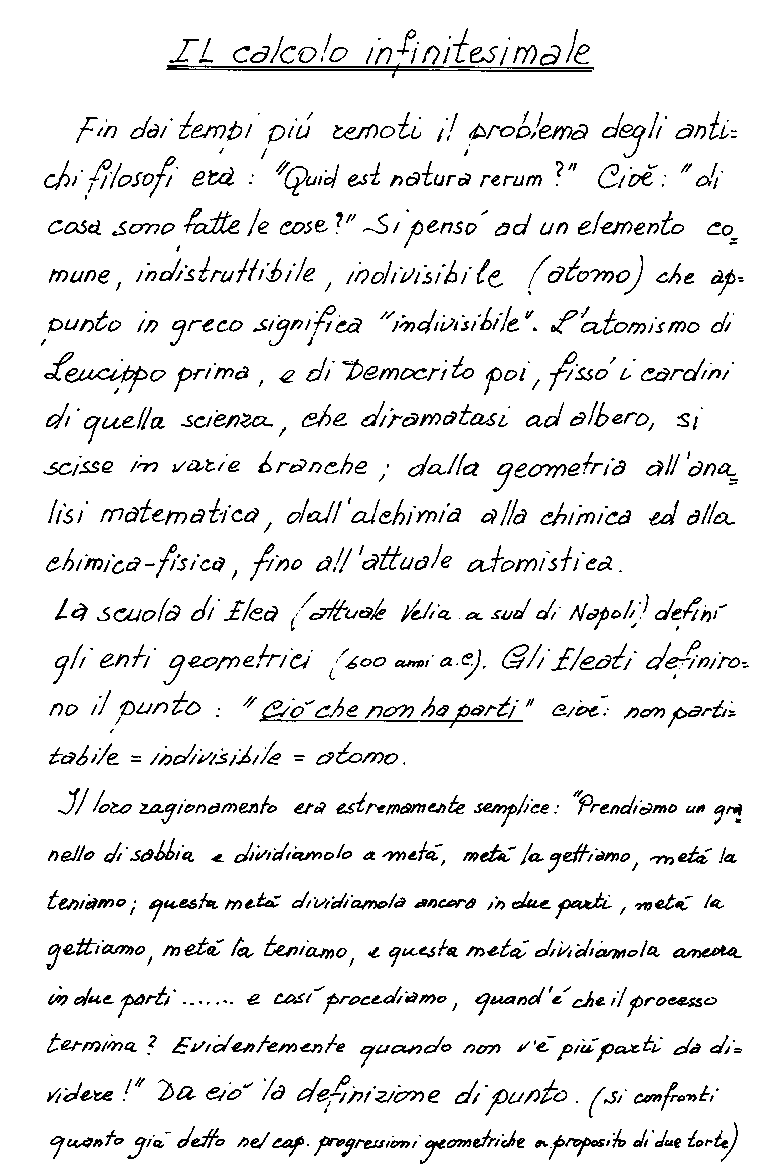 IL calcolo infinitesimale
Fin dai tempi piú remoti il problema degli anti=
chi filosofi era : "Quid est natura rerum ?" Cioè : "di
cosa sono fatte le cose ?" Si pensó ad un elemento co=
mune, indistruttibile, indivisibile (atomo) che ap=
punto in greco significa "indivisibile". L'atomismo di
Leucippo prima, e di Democrito poi, fissó i cardini
di quella scienza, che diramatasi ad albero, si
scisse in varie branche ; dalla geometria all'ana=
lisi matematica, dall'alchimia alla chimica ed alla
chimica-fisica, fino all'attuale atomistica.
La scuola di Elea (attuale Velia a sud di Napoli) definí
gli enti geometrici (600 anni a.C). Gli Eleati definiro=
no il punto : "Ció che non ha parti" cioè: non parti=
tabile = indivisibile = atomo.
Il loro ragionamento era estremamente semplice : "Prendiamo un gra=
nello di sabbia e dividiamolo a metá, metá la gettiamo, metá la
teniamo ; questa metá dividiamola ancora in due parti, metá la
gettiamo, metá la teniamo, e questa metá dividiamola ancora
in due parti ....... e cosí procediamo, quand'é che il processo
termina ? Evidentemente quando non v'é piú parti da di=
videre !" Da ció la definizione di punto. (si confronti
quanto giá detto nel cap. progressioni geometriche a proposito di due torte)